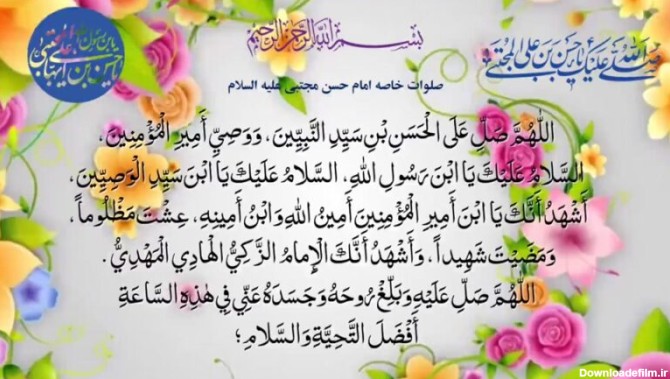 بِسْمِ اللَّهِ الرَّحْمٰنِ الرَّحِيمِ
صَلَّى اللهُ عَلَيْكَ يَا حَسَنَ بْنَ عَلِيٍّ الْمُجْتَبَى
صلوات خاصه امام حسن مجتبی علیه السلام
اَللّٰهُمَّ صَلِّ عَلَى الْحَسَنِ بْنِ سَيِّدِ النَّبِيِّينَ، وَوَصِيِّ أَمِيرِ الْمُؤْمِنِينَ،
السَّلامُ عَلَيْكَ يَا ابْنَ رَسُولِ اللهِ، السَّلامُ عَلَيْكَ يَا ابْنَ سَيِّدِ الْوَصِيِّينَ،
أَشْهَدُ أَنَّكَ يَا ابْنَ أَمِيرِ الْمُؤْمِنِينَ أَمِينُ اللهِ وَابْنُ أَمِينِهِ، عِشْتَ مَظْلُوماً،
وَمَضَيْتَ شَهِيداً، وَأَشْهَدُ أَنَّكَ الْإِمامُ الزَّكِيُّ الْهَادِي الْمَهْدِيُّ.
اَللّٰهُمَّ صَلِّ عَلَيْهِ وَبَلِّغْ رُوحَهُ وَجَسَدَهُ عَنِّي فِي هٰذِهِ السَّاعَةِ
أَفْضَلَ التَّحِيَّةِ وَالسَّلامِ؛
Downloadefilm.ir